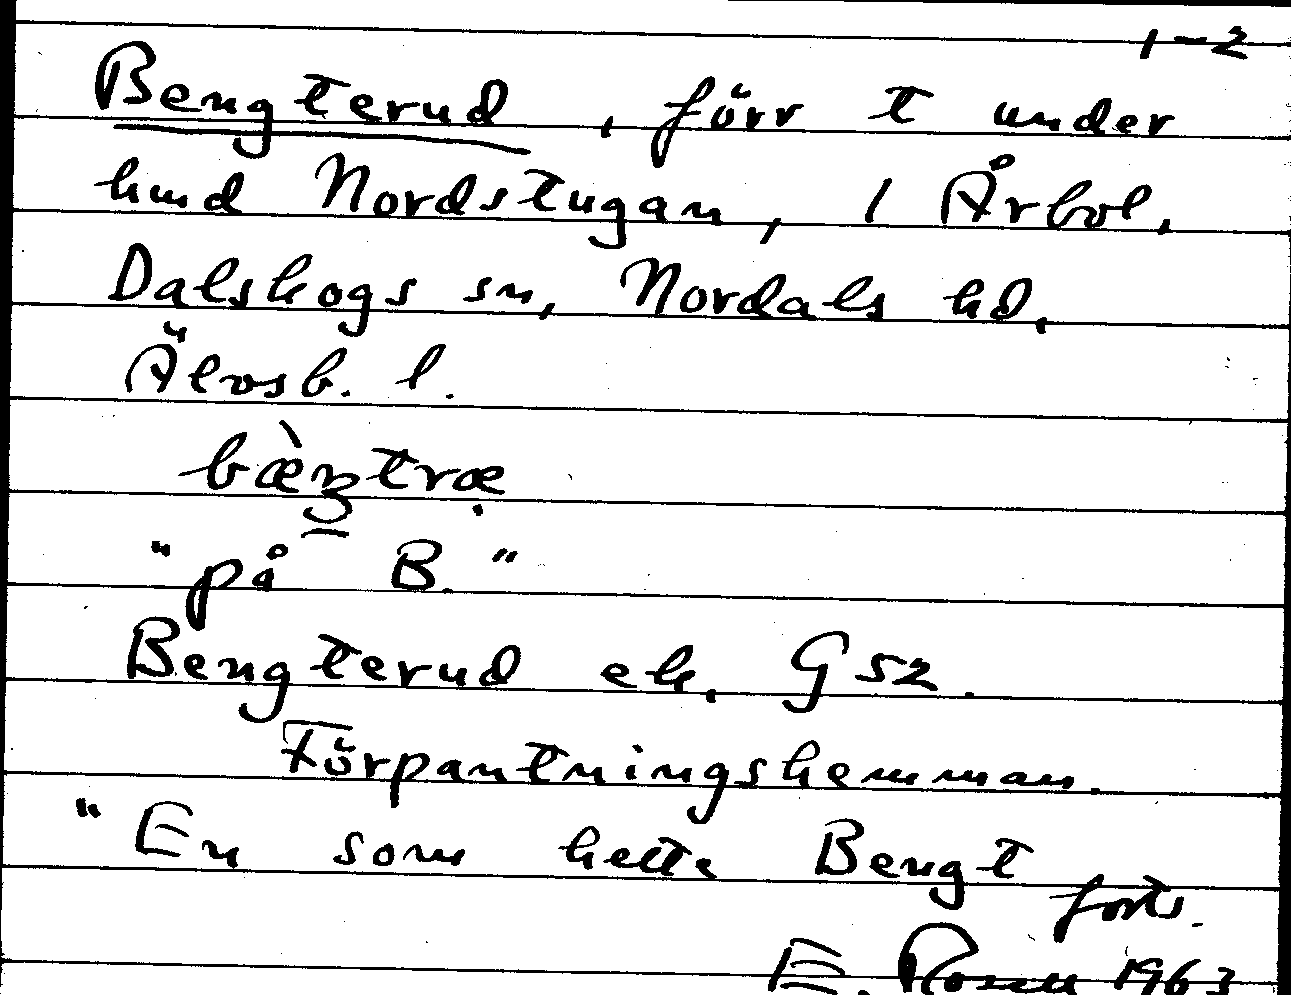 1-2
Bengterud, förr t under
hmd Nordstugan, 1 Årbol,
Dalskogs sn, Nordals hd,
Älvsb. l.
"på B."
Bengterud ek. G 52.
Förpantningshemman.
"En som hette Bengt
forts.
E. Rosell 1963